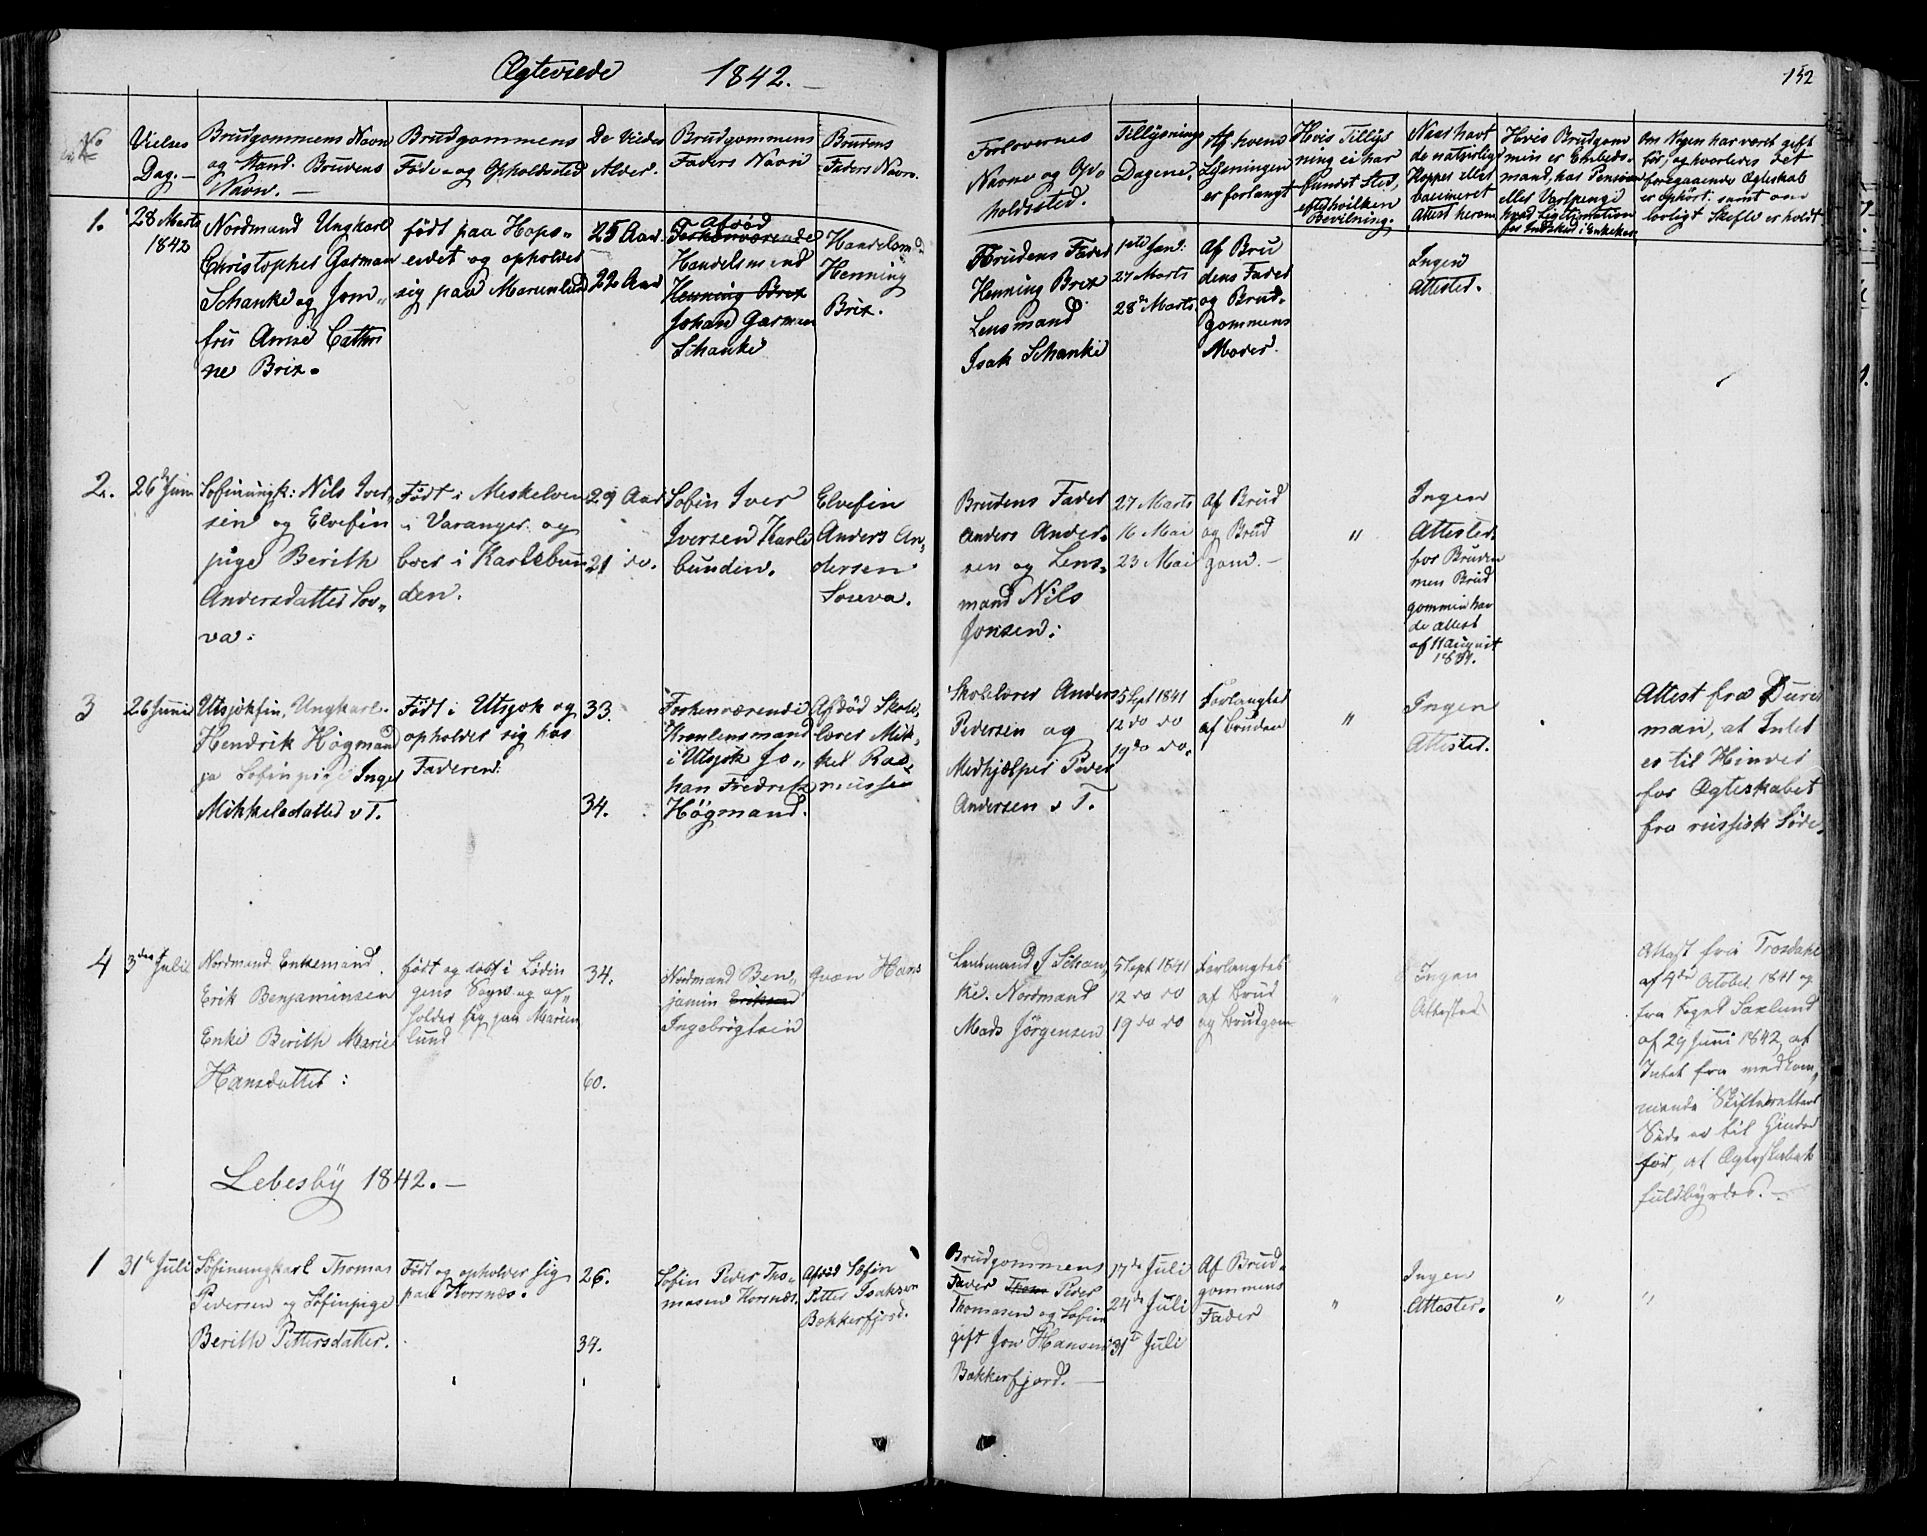 Ægteviede 1842.
152
No
Vielses
Dag.
Brudgommens Navn
og Stand. Brudens
Navn.
Brudgommens
Føde- og Opholdsted
De Viedes
Alder.
Brudgommens
Faders Navn
Brudens
Faders Navn.
Forlovernes
Navne og Op-
holdssted.
Tillysnings
Dagene.
Af hvem
Lysningen
er forlangt
Hvis Tillys
ning ei har
fundet Sted,
efter hvilken
Bevilning.
Naar havt
de naturlige
Kopper eller
vaccineret
Attest herom
Hvis Brudgom
men er Embeds-
mand, har Pension
eller Vartpenge
Om Nogen har været gift
før, og hvorledes det
foregaaende Ægteskab
er ophørt, samt om
lovligt Skifte er holdt
1.
28 Marts
1842
Nordmand Ungkarl
Christopher Garman
Schanke og Jom-
fru Anne Cathri
ne Brix.
født paa Hops-
eidet og opholder
sig paa Marienlund
25 Aar
22 Aar
Afdød
Forhenværende
Handelsmand
Henning Brix
Johan Garman
Schanke
Handelsm.
Henning
Brix.
Brudens Fader
Henning Brix
Lensmand
Isak Schanke
27 Marts
28de Marts
Af Bru
dens Fader
og Brud-
gommens
Moder.
Ingen
Attester.
2.
26de Juni
Søfinungk: Nils Iver-
sen og Elvefin
pige Berith
Andersdatter Sov-
va:
Født i Meskelven
i Varanger og
boer i Karlebun
den.
29 Aar
21 do.
Søfin Iver
Iversen Karle
bunden.
Elvefin
Anders An-
dersen
Brudens Fader
Anders Ander-
sen og Lens-
mand Nils
Jonsen:
27 Marts
16 Mai
23 Mai
Af Brud
og Brud
gom. -
"
Ingen
Attester
for Bruden
men Brud
gommen hav
de attest
af 11 August
3
26 Juni
Utsjokfin, Ungkarl
Hendrik Högmand
Søfinpige Inger
Mikkelsdatter v T.
Født i Utsjok og
opholder sig hos
Faderen:
33.
34.
Forhenværende
Kronlensmand
i Utsjok Jo-
han Fredrik
Högmand.
Afdød Skole
lærer Mik-
kel Ras-
mussen
Skolelærer Anders
Pedersen og
Medhjælper Peder
Andersen v T.
5 Sept 1841
12 do do
19 do do.
Forlangtes
af Bruden
"
Ingen
Attester.
at Intet
er til Hinder
for Ægteskabet
fra russisk Side.
4
3die Juli
Nordmand Enkemand
Erik Benjaminsen
Enke Berith Marie
Hansdatter:
født og døbt i Lødin
gens Sogn og op-
holder sig paa Marien
lund
34.
60.
Nordmand Ben-
jamin Eriksen
Ingebrigtsen
Qvæn Hans
Lensmand J Schan
ke. Nordmand
Mads Jörgensen
5 Sept 1841
12 do do
19 do do
Forlangtes
af Brud
og Brudgom
"
Ingen
Attester
af 4de October 1841 og
fra Foged Saxlund
af 29 Juni 1842, at
Intet fra vedkom-
mende Skifteretters
Side er til Hinder
for, at Ægteskabet
fuldbyrdes. -
Lebesby 1842. -
1
31te Juli
Søfinungkarl Thomas
Pedersen og Søfinpige
Berith Pettersdatter.
Født og opholder sig
paa Korsnæs.
26.
34.
Søfin Peder Tho-
masen Korsnæs.
Afdød Søfin
Petter Isaksen
Bekkerfjord.
Brudgommens
Fader Peder
Thomasen og Søfin
gift Jon Hansen
Bekkerfjord. -
17de Juli
24de Juli
31te Juli
Af Brud-
gommens
Fader
"
Ingen
Attester.
"
"